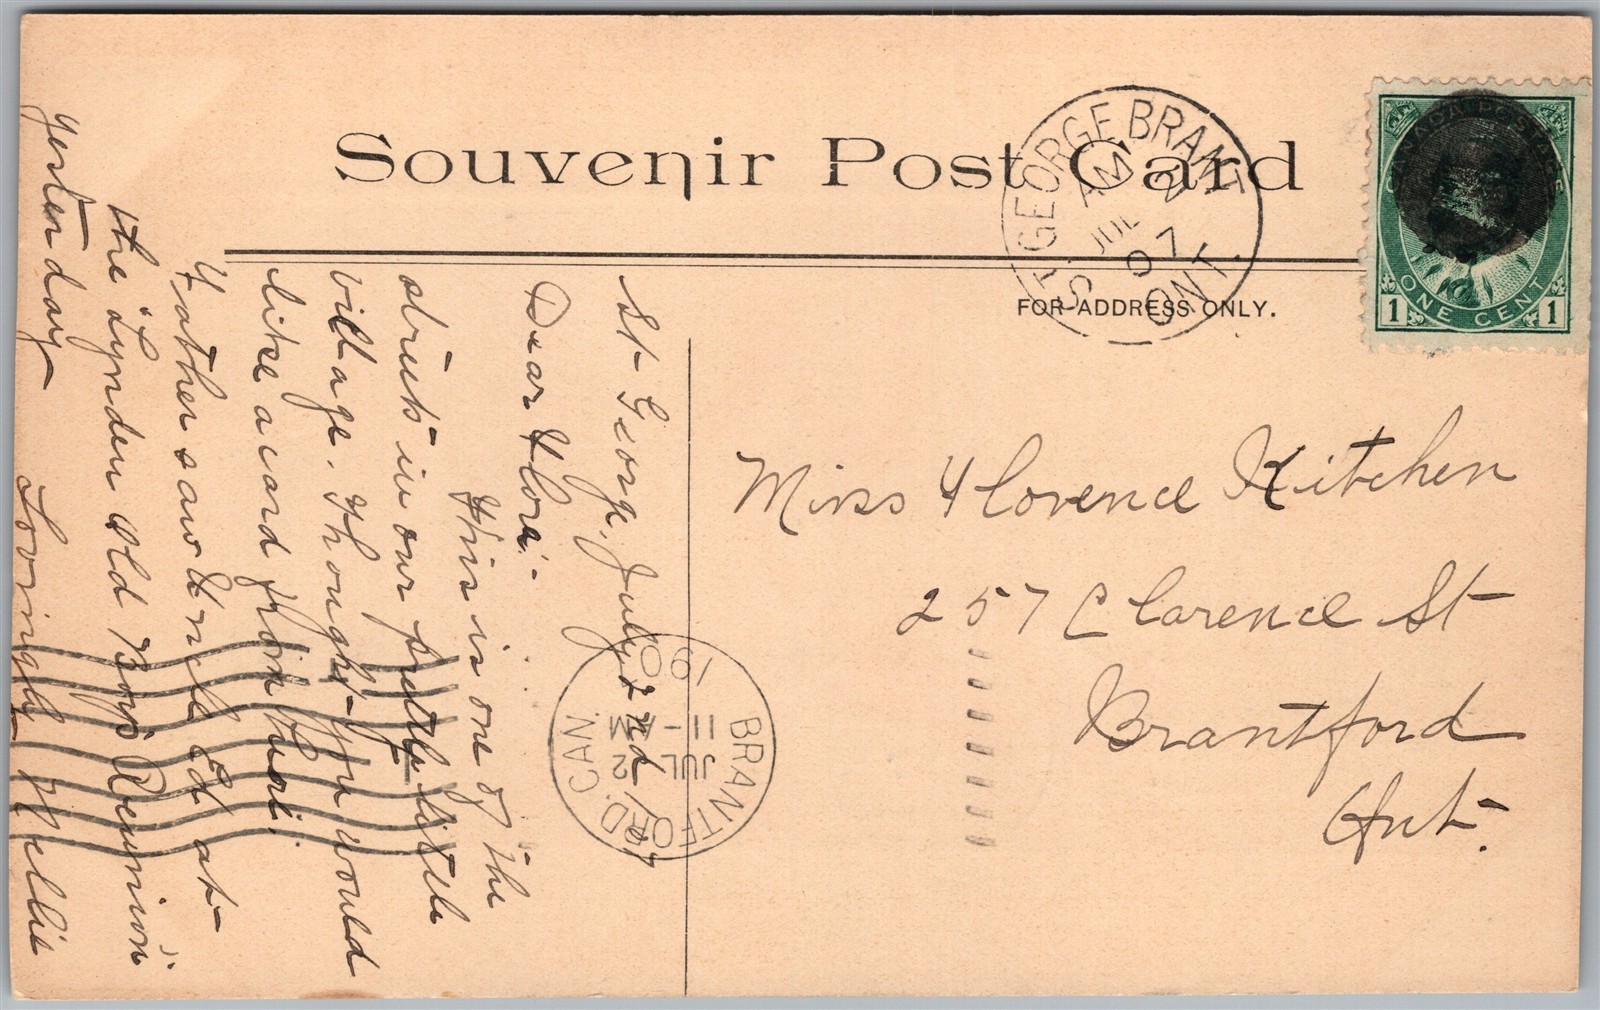 Souvenir Post Card
FOR ADDRESS ONLY.
ST GEORGE BRANT
AM
JUL 2
07
ONT.
CANADA POSTAGE
ONE CENT
1 1
BRANTFORD. CAN.
JUL 2
11 - M
190
Miss Florence Kitchen
257 Clarence St
Brantford
Ont.
St George, July 2nd / 07
Dear Flora:-
This is one of the
streets in our pretty little
village. Thought you would
like a card from here.
Father saw Uncle Ed at
the "Lynden Old Boys Reunion"
yesterday—
Lovingly Nellie